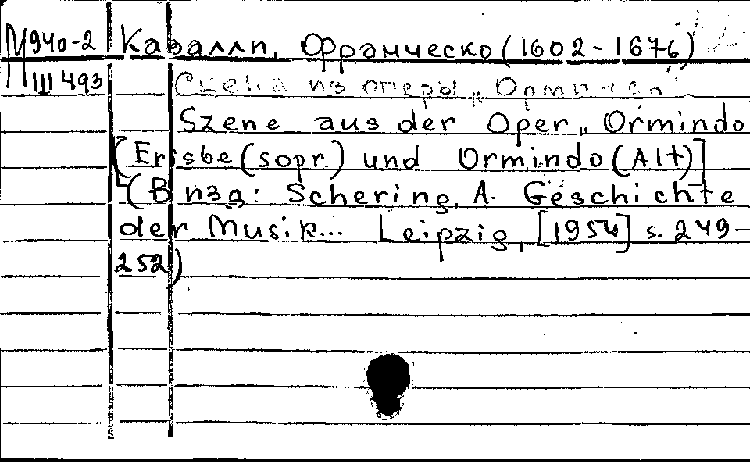 М940-2 Кавалли, Франческо (1602-1676)
III 493 Сцена из оперы „
Szene aus der Oper „Ormindo
[Erisbe (sopr.) und Ormindo (Alt)]
(В изд: Schering, A. Geschichte
der Musik... Leipzig, [1954] s. 249-
252)